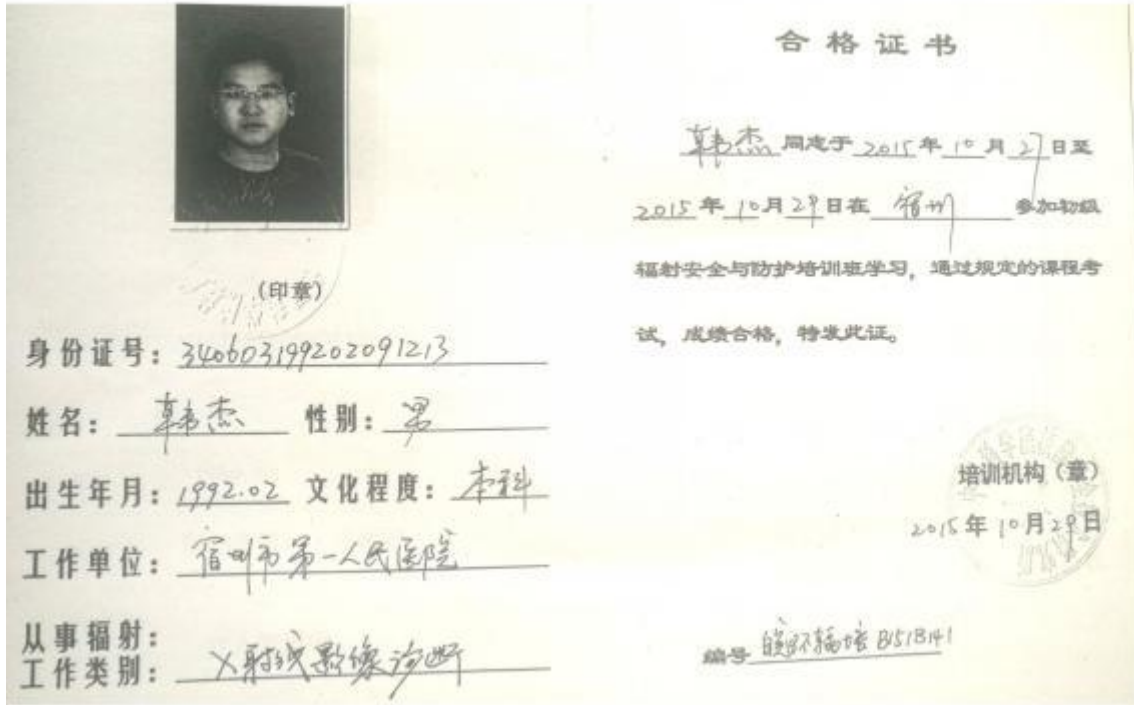 (印章)
身份证号：340603199202091213
姓名：韩杰 性别：男
出生年月：1992.02 文化程度：本科
工作单位：宿州市第一人民医院
从事辐射：
工作类别：X射线影像诊断
合格证书
韩杰同志于2015年10月27日至
2015年10月29日在 宿州 参加初级
辐射安全与防护培训班学习，通过规定的课程考
试，成绩合格，特发此证。
培训机构（章）
2015年10月29日
编号 皖环辐培B1513141